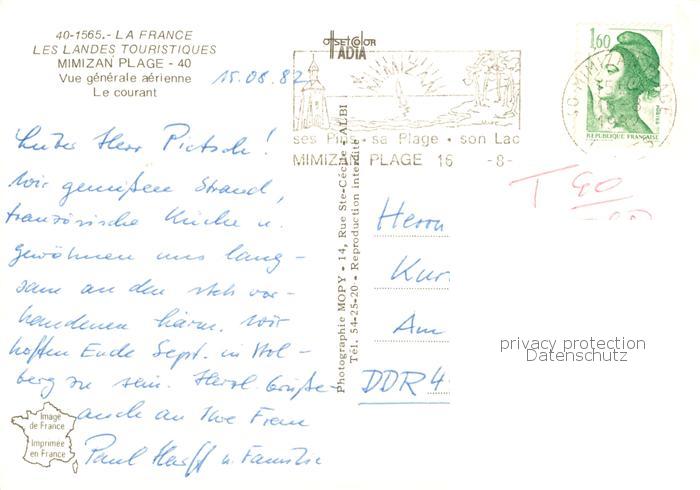 40-1565.- LA FRANCE
LES LANDES TOURISTIQUES
MIMIZAN PLAGE - 40
Vue générale aérienne
Le courant
15.08.82
Lieber Herr Pietsch!
Wir genießen Strand,
französische Küche u.
gewöhnen uns lang-
sam an den stets vor-
handenen Lärm. Wir
hoffen Ende Sept. in Wol-
berg zu sein. Herzl. Grüße
auch an Ihre Frau
Paul u. Familie
Image
de France
Imprimée
en France
offset color
IADIA
MIMIZAN
ses Pins - sa Plage - son Lac
MIMIZAN PLAGE 16 -8-
1,60
REPUBLIQUE FRANÇAISE
40 MIMIZAN
T 90
Photographie MOPY - 14, Rue Ste-Cécile - ALBI
Tél. 54-25-20 - Reproduction interdite
Herrn
Kur
Am
DDR 4
privacy protection
Datenschutz